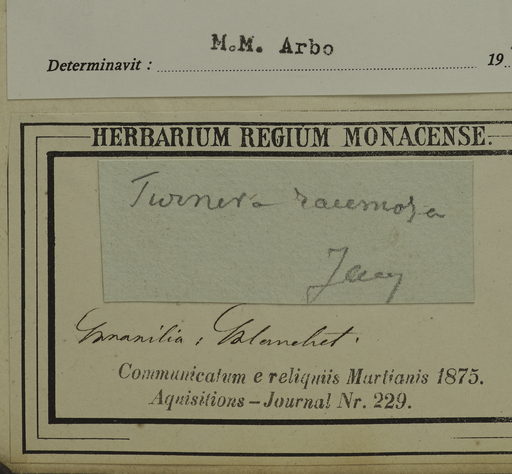 M.M. Arbo
Determinavit : 19
HERBARIUM REGIUM MONACENSE.
Turnera racemosa
Jacq
Brasilia : Blanchet.
Communicatum e reliquiis Martianis 1875.
Aquisitions – Journal Nr. 229.